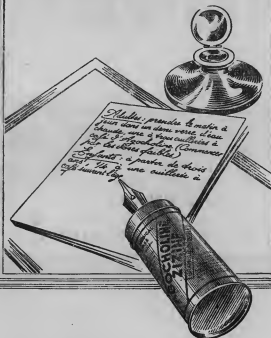 Adultes : prendre le matin à
jeun dans un demi verre d'eau
chaude, une à trois cuillerées à
café d'Agocholine (Commencer
par les doses faibles)
Enfants : à partir de trois
une cuillerée à
café suivant l'âge
AGOCHOLINE
ZIZINE